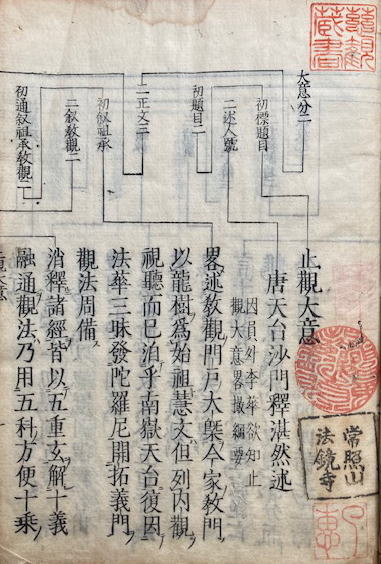 大意分二
初標題目
二述人號
初題目二
二正文二
初叙祖承
二叙教觀二
初通叙祖承教觀二
止觀大意
唐天台沙門釋湛然述
因員外李華欲知止
觀大意畧撮綱要
畧述教觀門戶大槩今家教門
以龍樹爲始祖慧文但列內觀
視聽而已洎乎南嶽天台復因
法華三昧發陀羅尼開拓義門
觀法周備
消釋諸經皆以五重玄解十義
融通觀法乃用五科方便十乘
常照山
法鏡寺
藏書